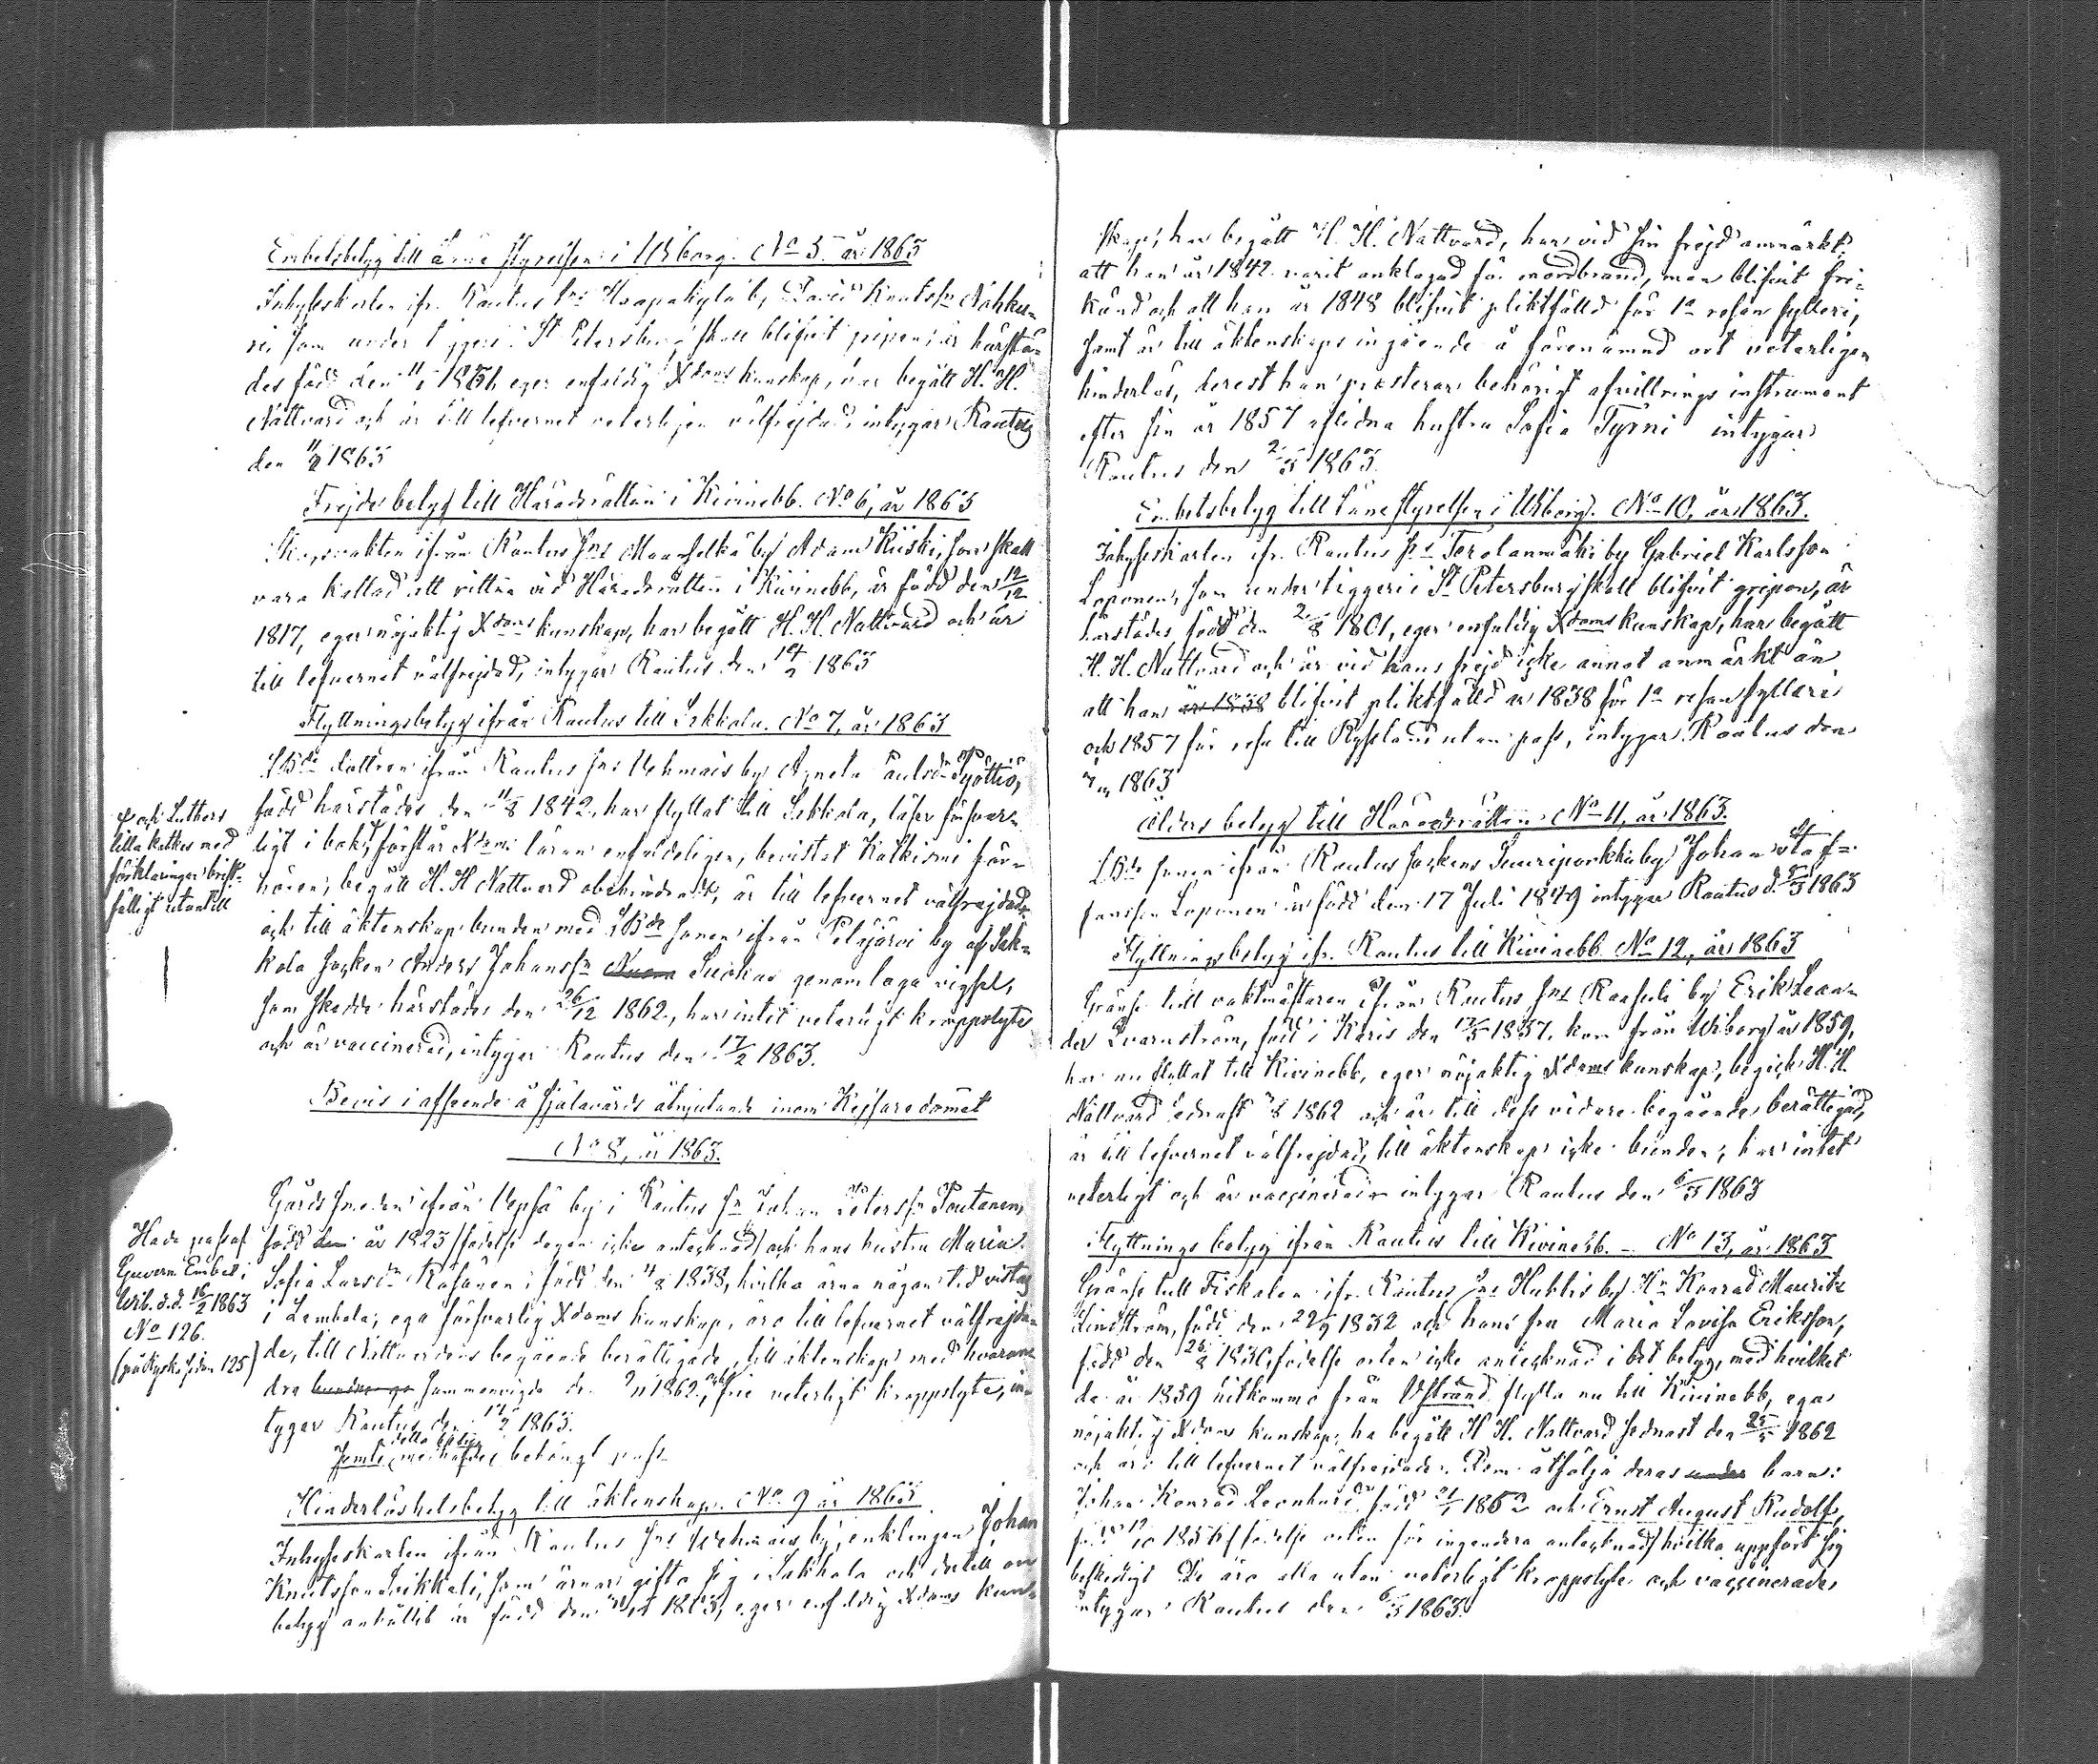 Embetsbetyg till Läne Styrelsen i Wiborg. No 5. år 1863
Inhyseskarlen ifr. Rautus sns Haapakylä by David Knutssn Nähku-
ri, som under liggeri i St Petersburg skall blifvit gripen, är härstä-
des född den eger enfaldig Xdoms kunskap, har begått H. H.
Nattvard och är till lefvernet veterligen välfrejdad, intygar Rautus
den 11/2 1863
Frejde betyg till Häradsrätten i Kivinebb. No 6, år 1863
ifrån Rautus sns Maanselkä by Adam Kiiski, som skall
vara kallad att vittna vid Häradsrätten i Kivinebb, är född den 12/12
1817, eger nöjaktig Xdoms kunskap, har begått H. H. Nattvard och är
till lefvernet välfrejdad, intygar Rautus den 14/2 1863
Flyttningsbetyg ifrån Rautus till Sakkola. No 7, år 1863
LBde dottren ifrån Rautus sns Vehmais by Agneta Paulsdr Pyöttiö,
född härstädes den 11/8 1842, har flyttat till Sakkola, läser försvar-
ligt i bok, förstår Xdoms läran enfaldeligen, bevistat Katkismi för-
hören, begått H. H Nattvard obehindradt, är till lefvernet välfrejdad
och till äktenskap bunden med LBde sonen ifrån Petäjärvi by af Sak-
kola socken Anders Johanssn Suokas genom laga vigsel,
som skedde härstädes den 26/12 1862, har intet veterligt kroppslyte
och är vaccinerad, intygar Rautus den 17/2 1863.
och Luthers
lilla katkes med
förklaringar brist-
fälligt utantill
Bevis i afseende å själavårds åtnjutande inom Kejsaredömet
No 8, år 1863.
Gårdssmeden ifrån Vepsä by i Rautus sn Johan Peterssn Poutanen,
född den år 1823 (födelse dagen icke antecknad) och hans hustru Maria
Sofia Larsdr Räsänen, född den 4/8 1838, hvilka ärna någon tid vistas
i Lembala, ega försvarlig Xdoms kunskap, äro till lefvernet välfrejda-
de, till Nattvardens begående berättigade, till äktenskap med hvaran-
dra sammanvigde den 1862, och frie veterligt kroppslyte, in-
tygar Rautus den 17/2 1863.
Jemte detta betyg medhafdes behörigt pass
Hade pass af
Guvern. Embet i
Wib. d.d. 16/2 1863
No 126.
(på Ryska sidan 125)
Hinderlöshetsbetyg till äktenskap. No 9 år 1863
Inhyseskarlen ifrån Rautus sns Vehmais by, enklingen Johan
Knutsson Loikkali, som ärnar gifta sig i Sakkola och dertill om
betyg anhållit är född den 1803, eger enfaldig Xdoms kun-
skap, har begått H. H. Nattvard, har vid sin frejd anmärkt
att han år 1842 varit anklagad för mordbrand, men blifvit fri-
känd och att han år 1848 blifvit pliktfälld för 1a resan fylleri,
samt är till äktenskaps ingående å förenämnd ort veterligen
hinderlös, derest han presterar behörigt afvittrings instrument
efter sin år 1857 aflidna hustru Sofia Tyrni intygar
Rautus den 1863.
Embetsbetyg till Länestyrelsen i Wiborg. No 10, år 1863.
Inhyseskarlen ifr. Rautus sns Terolanmäki by Gabriel Karlsson
Loponen, som under liggeri i St Petersburg skall blifvit gripen, är
härstädes född den 1801, eger enfaldig Xdoms kunskap, har begått
H. H. Nattvard och är vid hans frejd icke annat anmärkt än
att han år 1838 blifvit pliktfälld år 1838 för 1a resan fylleri
och 1857 för resa till Ryssland utan pass, intygar Rautus den
1863
Ålders betyg till Häradsrätten No 11, år 1863.
LBde sonen ifrån Rautus sockens Suuriporkku by Johan Staf-
fansson Loponen är född den 17 Juli 1849 intygar Rautus d. 5/3 1863
Flyttningsbetyg ifr. Rautus till Kivinebb No 12, år 1863
Gränse tull vaktmästaren ifrån Rautus sns Raasuli by Erik Lean-
der Qvarnström, född i Karis den 1837, kom från Wiborg år 1859,
har nu flyttat till Kivinebb, eger nöjaktig Xdoms kunskap, begick H. H.
Nattvard sednast 1862 och är till dess vidare begående berättigad,
är till lefvernet välfrejdad, till äktenskap icke bunden, har intet
veterligt och är vaccinerad intygar Rautus den 6/3 1863
Flyttnings betyg ifrån Rautus till Kivinebb. – No 13, år 1863
Gränse tull Fiskalen ifr. Rautus sns Huhtis by Hr Konrad Mauritz
Lindström, född den 22/9 1832 och hans fru Maria Lovisa Eriksson,
född den 26/8 födelse orten icke antecknad i det betyg, med hvilket
de år 1859 hitkommo från Ystrand flytta nu till Kivinebb, ega
nöjaktig Xdoms kunskap, ha begått H H. Nattvard sednast den 25/5 1862
och äro till lefvernet välfrejdade. Dem åtfölja deras barn:
Johan Konrad Leonhard född och Ernst August Rudolf,
född (födelse orten för ingendera antecknad) hvilka uppfört sig
beskedligt De äro alla utan veterligt kroppslyte och vaccinerade,
intygar Rautus den 6/3 1863.